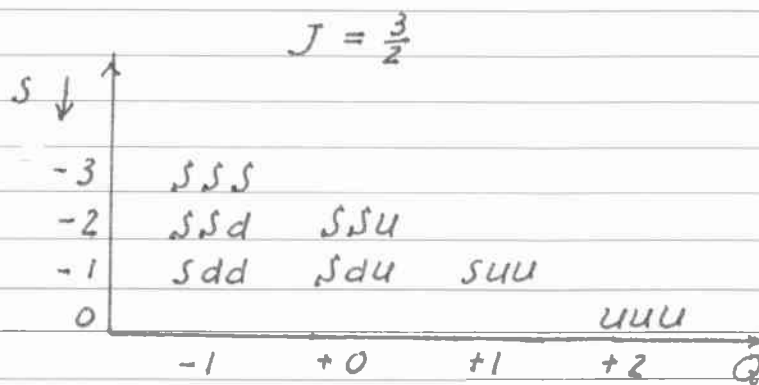 J = 3/2
S ↓
-3 sss
-2 ssd ssu
-1 sdd sdu suu
0 uuu
-1 +0 +1 +2 Q